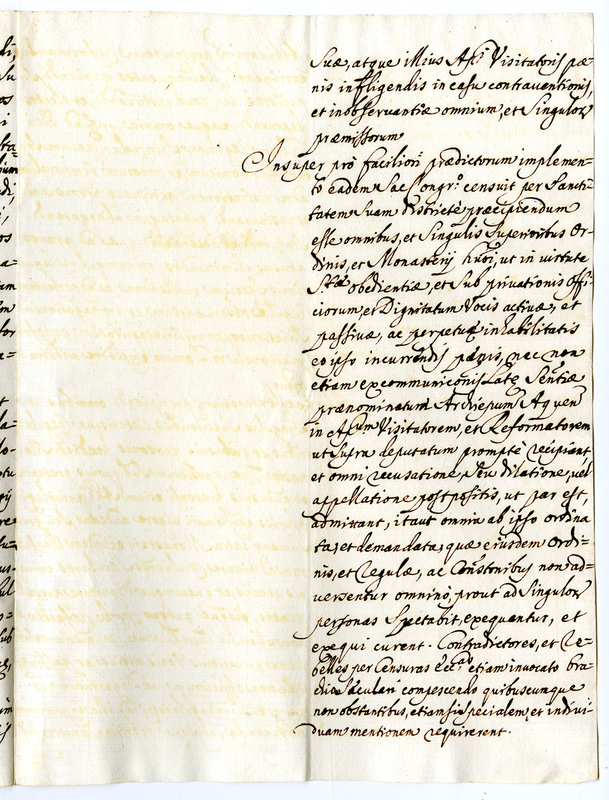 Suæ, atque illius Ap.ci Visitatorij pæ-
nis infligendis in casu contraventionis,
et inobservantiæ omnium, et Singulor
præmissorum
Insuper pro faciliori prædictorum implemen-
to eadem Sac. Congr.o censuit per Sancti-
tatem Suam districtè præcipiendum
esse omnibus, et Singulis Superioribus Or-
dinis, et Monasterij huõi, ut in virtute
S.tæ obedientiæ, et Sub privationis offi-
ciorum, et Dignitatum Vocis activæ, et
passivæ, ac perpetuę inhabilitatis
eo ipso incurrendis pænis, nec non
etiam excommuniconis Latę Sentiæ
prænominatum Archiepum Aquen
in Ap.cum Visitatorem, et Reformatorem
ut Supra deputatum promptè recipiant
et omni recusatione, Seu dilatione, vel
appellatione postpositis, ut par est,
admittant, itaut omnia ab ipso ordina
ta, et demandata, quæ eiusdem Ordi-
nis, et Regulæ, ac Constonibus non ad-
versentur omninò, prout ad Singulor
personas Spectabit, exequantur, et
exequi curent. Contradictores, et Re-
belles per Censuras ecc.cas etiam invocato bra-
chio Sæculari compescendo quibuscumque
non obstantibus, etiamsi specialem, et indivi-
duam mentionem requirerent.